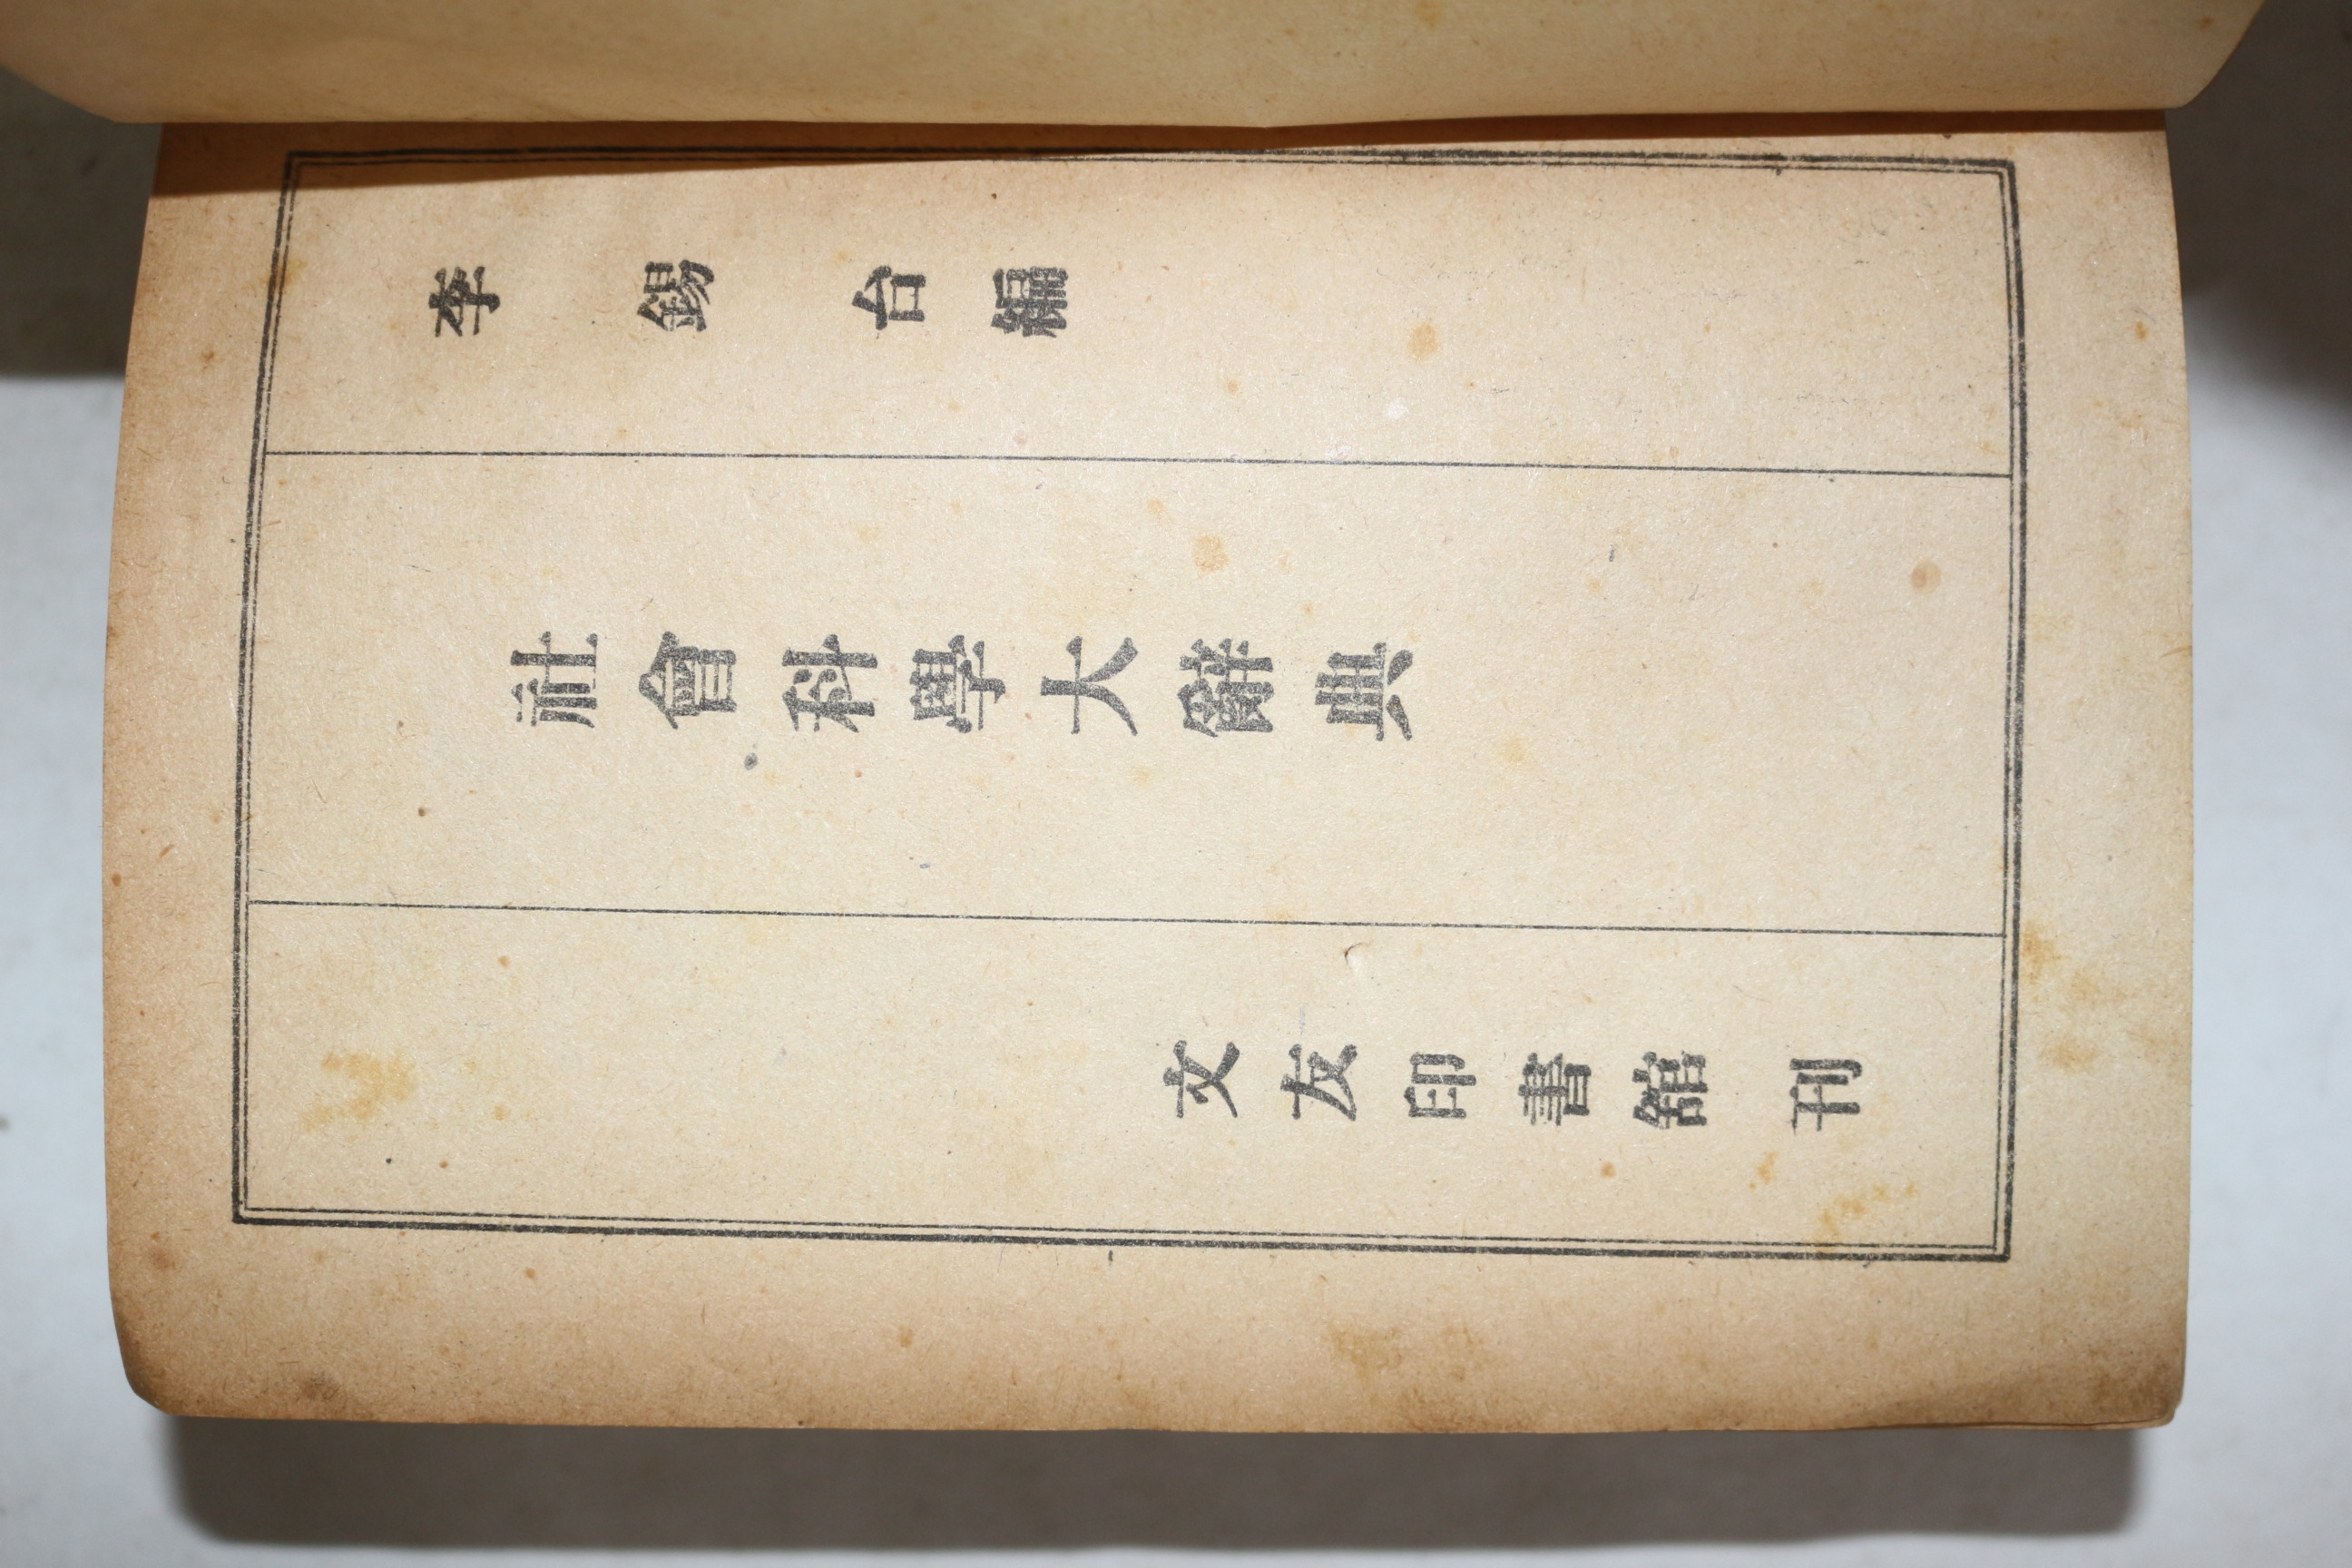 李錫台編
社會科學大辭典
文友印書舘 刊